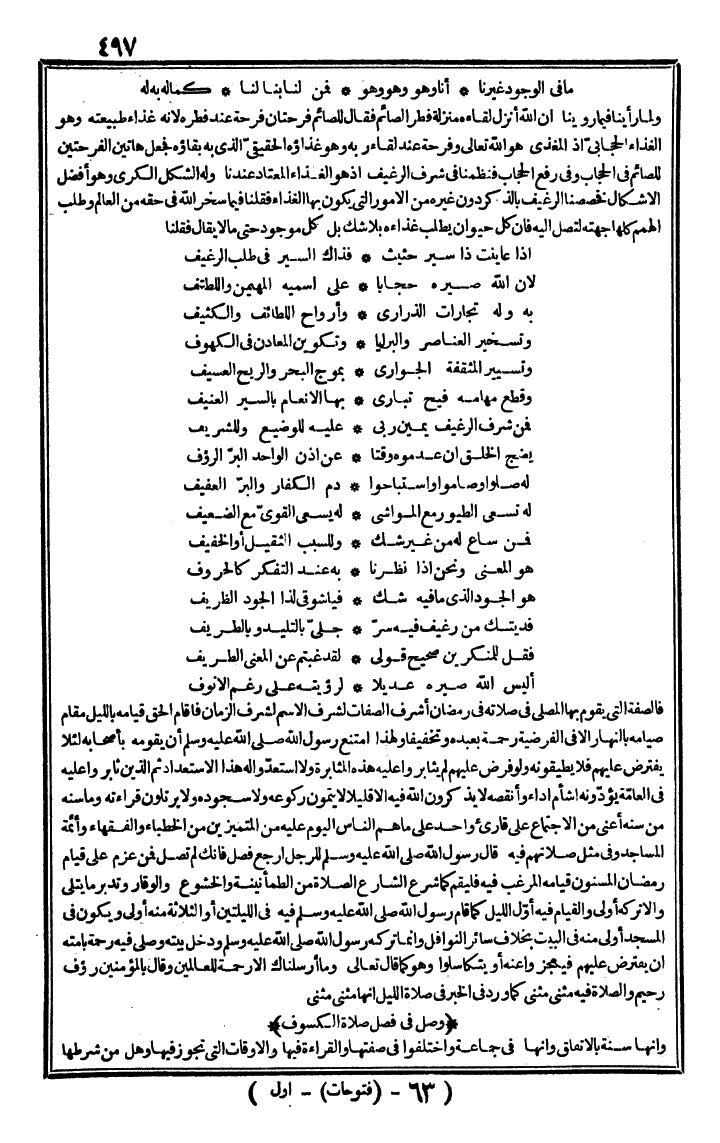 ٤٩٧
مافى الوجود غيرنا * أنا وهو وهو وهو * فمن لنا بنا لنا * كماله به له
ولما رأينا فيما روينا ان الله أنزل لقاءه منزلة فطر الصائم فقال للصائم فرحتان فرحة عند فطره لانه غذاء طبيعته وهو
الغذاء الحجابىّ اذ المغذى هو الله تعالى وفرحة عند لقاء ربه وهو غذاؤه الحقيقىّ الذى به بقاؤه فجعل هاتين الفرحتين
للصائم فى الحجاب وفى رفع الحجاب فنظمنا فى شرف الرغيف اذ هو الغذاء المعتاد عندنا وله الشكل الكرى وهو أفضل
الاشكال فخصصنا الرغيف بالذكر دون غيره من الامور التى يكون بها الغذاء فقلنا فيما سخر الله فى حقه من العالم وطلب
الهمم كلها جهته لتصل اليه فان كل حيوان يطلب غذاءه بلا شك بل كل موجود حتى مالا يقال فقلنا
اذا عاينت ذا سير حثيث * فذاك السير فى طلب الرغيف
لان الله صيره حجابا * على اسميه المهيمن واللطيف
به وله تجارات الذرارى * وأرواح اللطائف والكثيف
وتسخير العناصر والبرايا * وتكوين المعادن فى الكهوف
وتسيير المثقفة الجوارى * بموج البحر والريح العسيف
وقطع مهامه فيح تبارى * بها الانعام بالسير العنيف
فمن شرف الرغيف يمين ربى * عليه للوضيع وللشريف
يضج الخلق ان عدموه وقتا * عن اذن الواحد البرّ الرؤف
له صلوا وصاموا واستباحوا * دم الكفار والبرّ العفيف
له تسعى الطيور مع المواشى * له يسعى القوىّ مع الضعيف
فمن ساع له من غير شك * وللسبب الثقيل أو الخفيف
هو المعنى ونحن اذا نظرنا * به عند التفكر كالحروف
هو الجود الذى مافيه شك * فياشوقى لذا الجود الظريف
فديتك من رغيف فيه سرّ * جلىّ بالتليد وبالطريف
فقل للمنكرين صحيح قولى * لقد غبتم عن المعنى الطريف
أليس الله صيره عديلا * لرؤيته على رغم الانوف
فالصفة التى يقوم بها المصلى فى صلاته فى رمضان أشرف الصفات لشرف الاسم لشرف الزمان فاقام الحق قيامه بالليل مقام
صيامه بالنهار الا فى الفرضية رحمة بعبده وتخفيفا ولهذا امتنع رسول الله صلى الله عليه وسلم أن يقومه بأصحابه لئلا
يفترض عليهم فلا يطيقونه ولو فرض عليهم لم يثابروا عليه هذه المثابرة ولا استعدّوا له هذا الاستعداد ثم الذين ثابروا عليه
فى العامّة يؤدّونه أشأم اداء وأنقصه لا يذكرون الله فيه الا قليلا لا يتمون ركوعه ولا سجوده ولا يرتلون قراءته وما سنه
من سنه أعنى من الاجتماع على قارئ واحد على ما هم الناس اليوم عليه من المتميزين من الخطباء والفقهاء وأئمّة
المساجد وفى مثل صلاتهم فيه قال رسول الله صلى الله عليه وسلم للرجل ارجع فصل فانك لم تصل فمن عزم على قيام
رمضان المسنون قيامه المرغب فيه فليقم كما شرع الشارع الصلاة من الطمأنينة والخشوع والوقار وتدبر ما يتلى
والا تركه أولى والقيام فيه أوّل الليل كما قام رسول الله صلى الله عليه وسلم فيه فى الليلتين أو الثلاثة منه أولى ويكون فى
المسجد أولى منه فى البيت بخلاف سائر النوافل وانما تركه رسول الله صلى الله عليه وسلم ودخل بيته وصلى فيه رحمة بامته
ان يفترض عليهم فيعجزوا عنه أو يتكاسلوا وهو كما قال تعالى وما أرسلناك الا رحمة للعالمين وقال بالمؤمنين رؤف
رحيم والصلاة فيه مثنى مثنى كما ورد فى الخبر فى صلاة الليل انها مثنى مثنى
﴿وصل فى فصل صلاة الكسوف﴾
وانها سنة بالاتفاق وانها فى جماعة واختلفوا فى صفتها والقراءة فيها والاوقات التى تجوز فيها وهل من شرطها
( ٦٣ - (فتوحات) - اول )